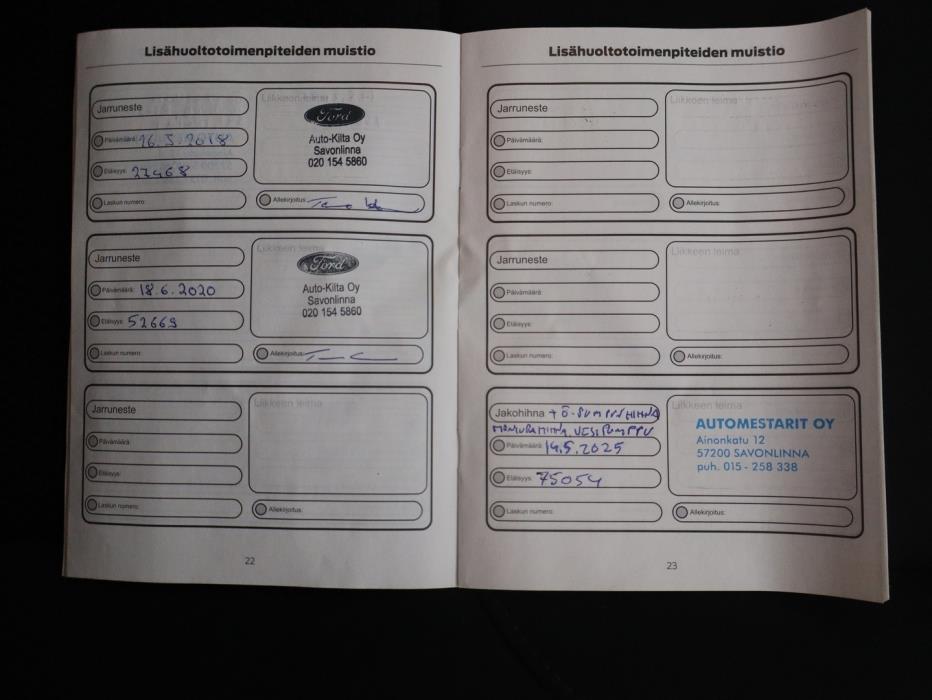 Lisähuoltotoimenpiteiden muistio
Jarruneste
Päivämäärä: 16.5.2018
Etäisyys: 27468
Laskun numero:
Liikkeen leima
Ford
Auto-Kilta Oy
Savonlinna
020 154 5860
Allekirjoitus:
Jarruneste
Päivämäärä: 18.6.2020
Etäisyys: 52669
Laskun numero:
Liikkeen leima
Ford
Auto-Kilta Oy
Savonlinna
020 154 5860
Allekirjoitus:
Jarruneste
Päivämäärä:
Etäisyys:
Laskun numero:
Liikkeen leima
Allekirjoitus:
22
Lisähuoltotoimenpiteiden muistio
Jarruneste
Päivämäärä:
Etäisyys:
Laskun numero:
Liikkeen leima
Allekirjoitus:
Jarruneste
Päivämäärä:
Etäisyys:
Laskun numero:
Liikkeen leima
Allekirjoitus:
Jakohihna + Ö-PUMPUNHIHNA
VESIPUMPPU
Päivämäärä: 14.5.2025
Etäisyys: 75054
Laskun numero:
Liikkeen leima
AUTOMESTARIT OY
Ainonkatu 12
57200 SAVONLINNA
puh. 015 - 258 338
Allekirjoitus:
23